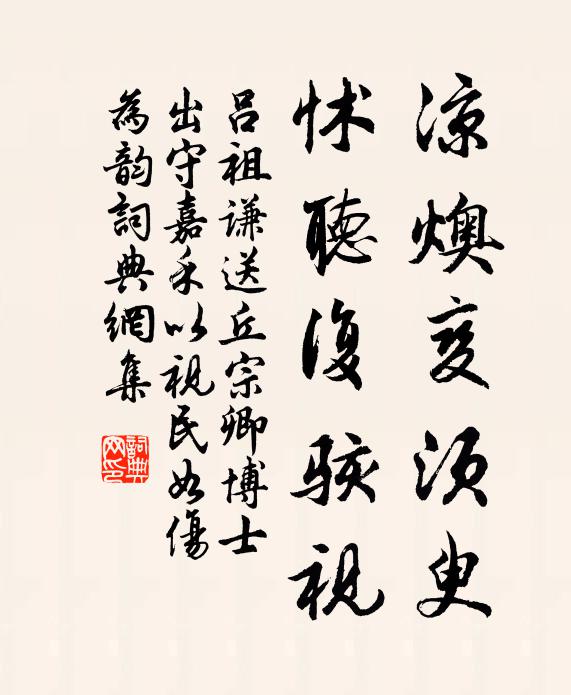 涼燠变須臾
怵聽復駭視
呂祖謙送丘宗卿博士
出守嘉禾以視民如傷
為韵詞典網集
詞典网印